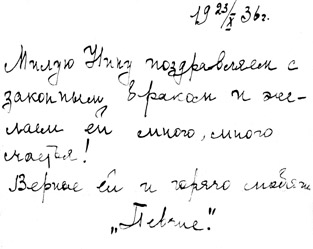 19 23/X 36 г.
Милую Нину поздравляем с
законным браком и же-
лаем ей много, много
счастья!
Верные ей и горячо любящ
„Певчие."